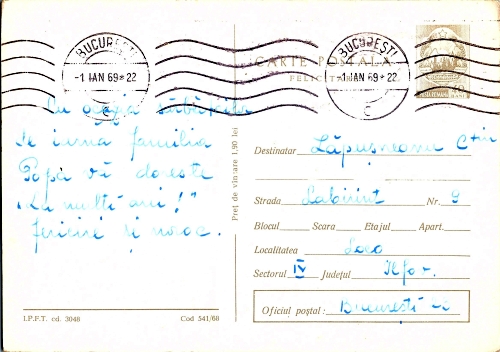 BUCUREȘTI
-1 IAN 69*22
C
CARTE POSTALA
FELICITARE
BUCUREȘTI
-1 IAN 69*22
C
Cu ocazia sărbători
de iarnă familia
Popa vă dorește
"La mulți ani!"
fericire și noroc.
Preț de vînzare 1,90 lei
Destinatar Lăpușneanu C-tin
Strada Labirint Nr. 9
Blocul Scara Etajul Apart.
Localitatea Loco
Sectorul IV Județul Ilfov.
Oficiul poștal: București
I.P.F.T. cd. 3048
Cod 541/68